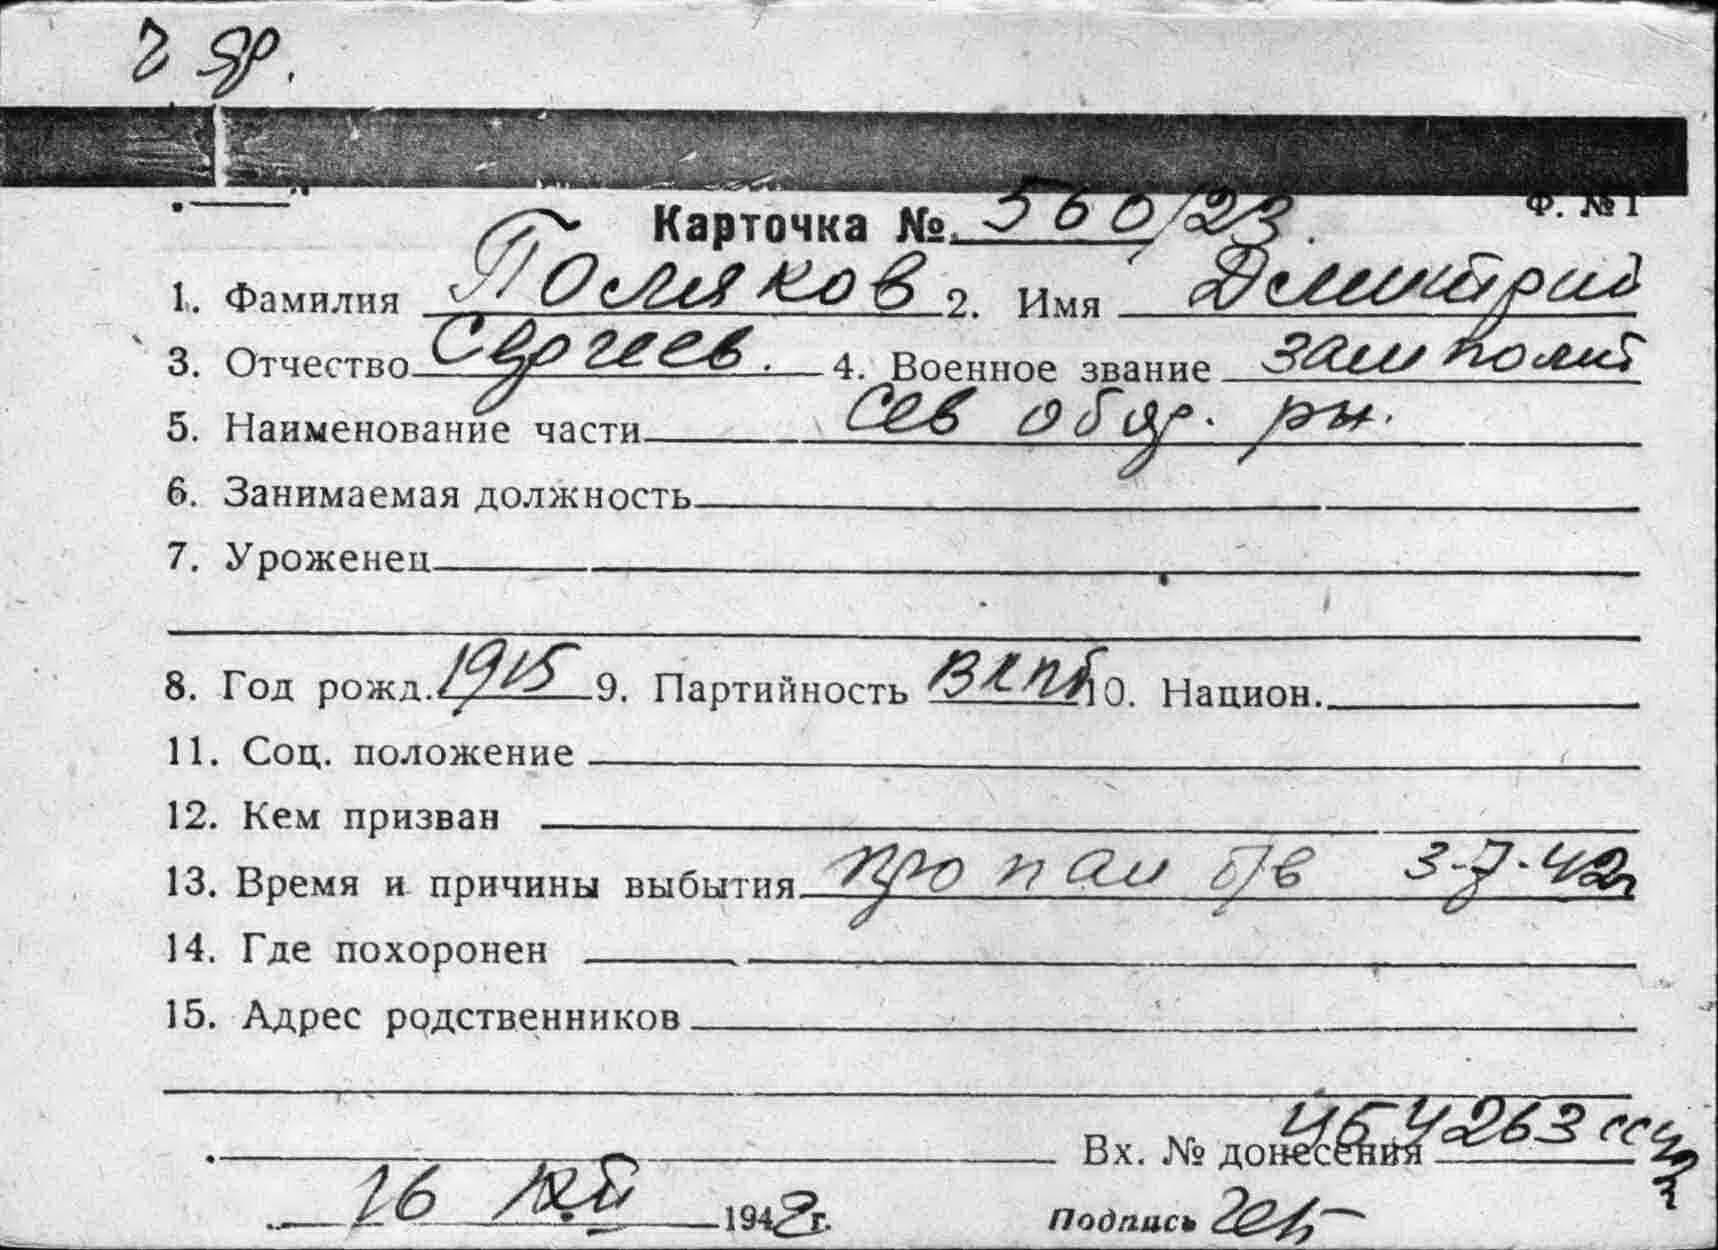 Ф. № 1
Карточка № 560/23.
1. Фамилия Поляков 2. Имя Дмитрий
3. Отчество Сергеев. 4. Военное звание замполит
5. Наименование части Сев обор. рн.
6. Занимаемая должность
7. Уроженец
8. Год рожд. 1915 9. Партийность ВКПб 10. Национ.
11. Соц. положение
12. Кем призван
13. Время и причины выбытия пропал б/в 3-7-42г
14. Где похоронен
15. Адрес родственников
Вх. № донесения
16 1942 г.
Подпись